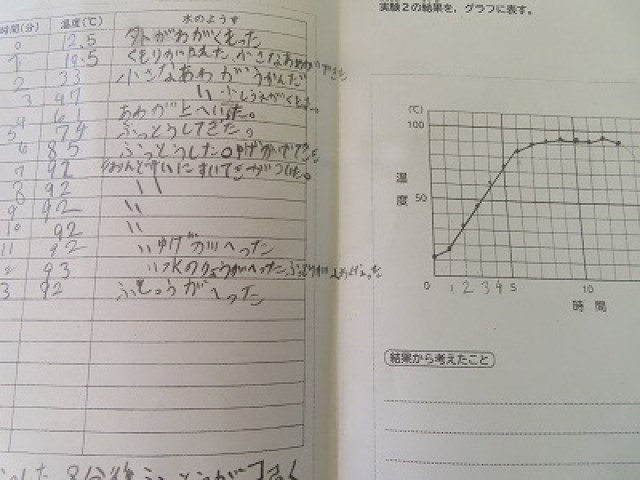 時間(分) 温度(℃) 水のようす
0 12.5 外がわがくもった
1 18.5 くもりがきえた、小さなあわができた
2 33 小さなあわがうかんだ
3 47 〃 少しうえがくもった。
4 61 あわが上へいった。
5 74 ふっとうしてきた。
6 85 ふっとうした。ゆげがでてきた
7 92 すいてきがついた。
8 92 〃
9 92 〃
10 92 〃
11 92 〃ゆげがへった
2 93 〃水のりょうがへった、
3 92 ふっとうがへった
8分後ふっとうが
実験2の結果を，グラフに表す。
(℃)
100
温度
50
0 1 2 3 4 5 10
時間
結果から考えたこと